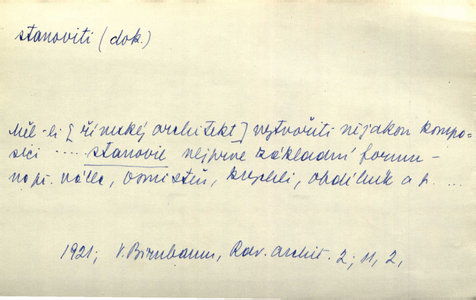 stanoviti (dok.)
Měl-li [římský architekt] vytvořiti nějakou kompo-
sici ..... stanovil nejprve základní formu -
np. válec, osmistěn, krychli, obdélník a p. ...
1921; V. Birnbaum, Rdv. archit. 2; 11, 2,